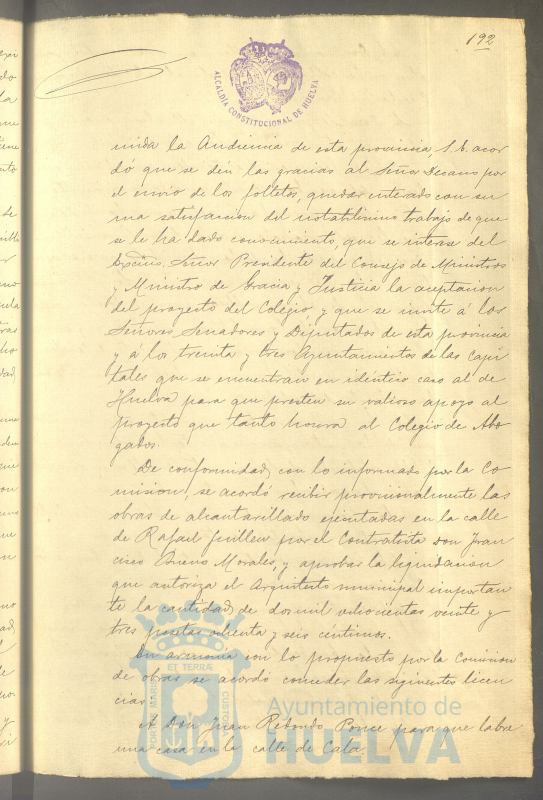 192
ALCALDIA CONSTITUCIONAL DE HUELVA
nida la Audiencia de esta provincia, S. E. acor
dó que se den las gracias al Señor Decano por
el envio de los folletos, quedar enterado con su
ma satisfaccion del notabilísimo trabajo de que
se le ha dado conocimiento, que se interese del
Excmo. Señor Presidente del Consejo de Ministros
y Ministro de Gracia y Justicia la aceptacion
del proyecto del Colegio, y que se invite á los
Señores Senadores y Diputados de esta provincia
y a los treinta y tres Ayuntamientos de las Capi
tales que se encuentran en identico caso al de
Huelva para que presten su valioso apoyo al
proyecto que tanto honra al Colegio de Abo
gados.
De conformidad con lo informado por la Co
mision, se acordó recibir provisionalmente las
obras de alcantarillado ejecutadas en la calle
de Rafael Guillen por el Contratista Don Fran
cisco Bueno Morales, y aprobar la liquidacion
que autoriza el Arquitecto municipal importan
te la cantidad de dos mil ochocientas veinte y
tres pesetas ochenta y seis centimos.
En armonia con lo propuesto por la Comision
de obras se acordó conceder las siguientes licen
cias.
A Don Juan Redondo Ponce para que labre
una casa en la calle de Cala
Ayuntamiento de
HUELVA